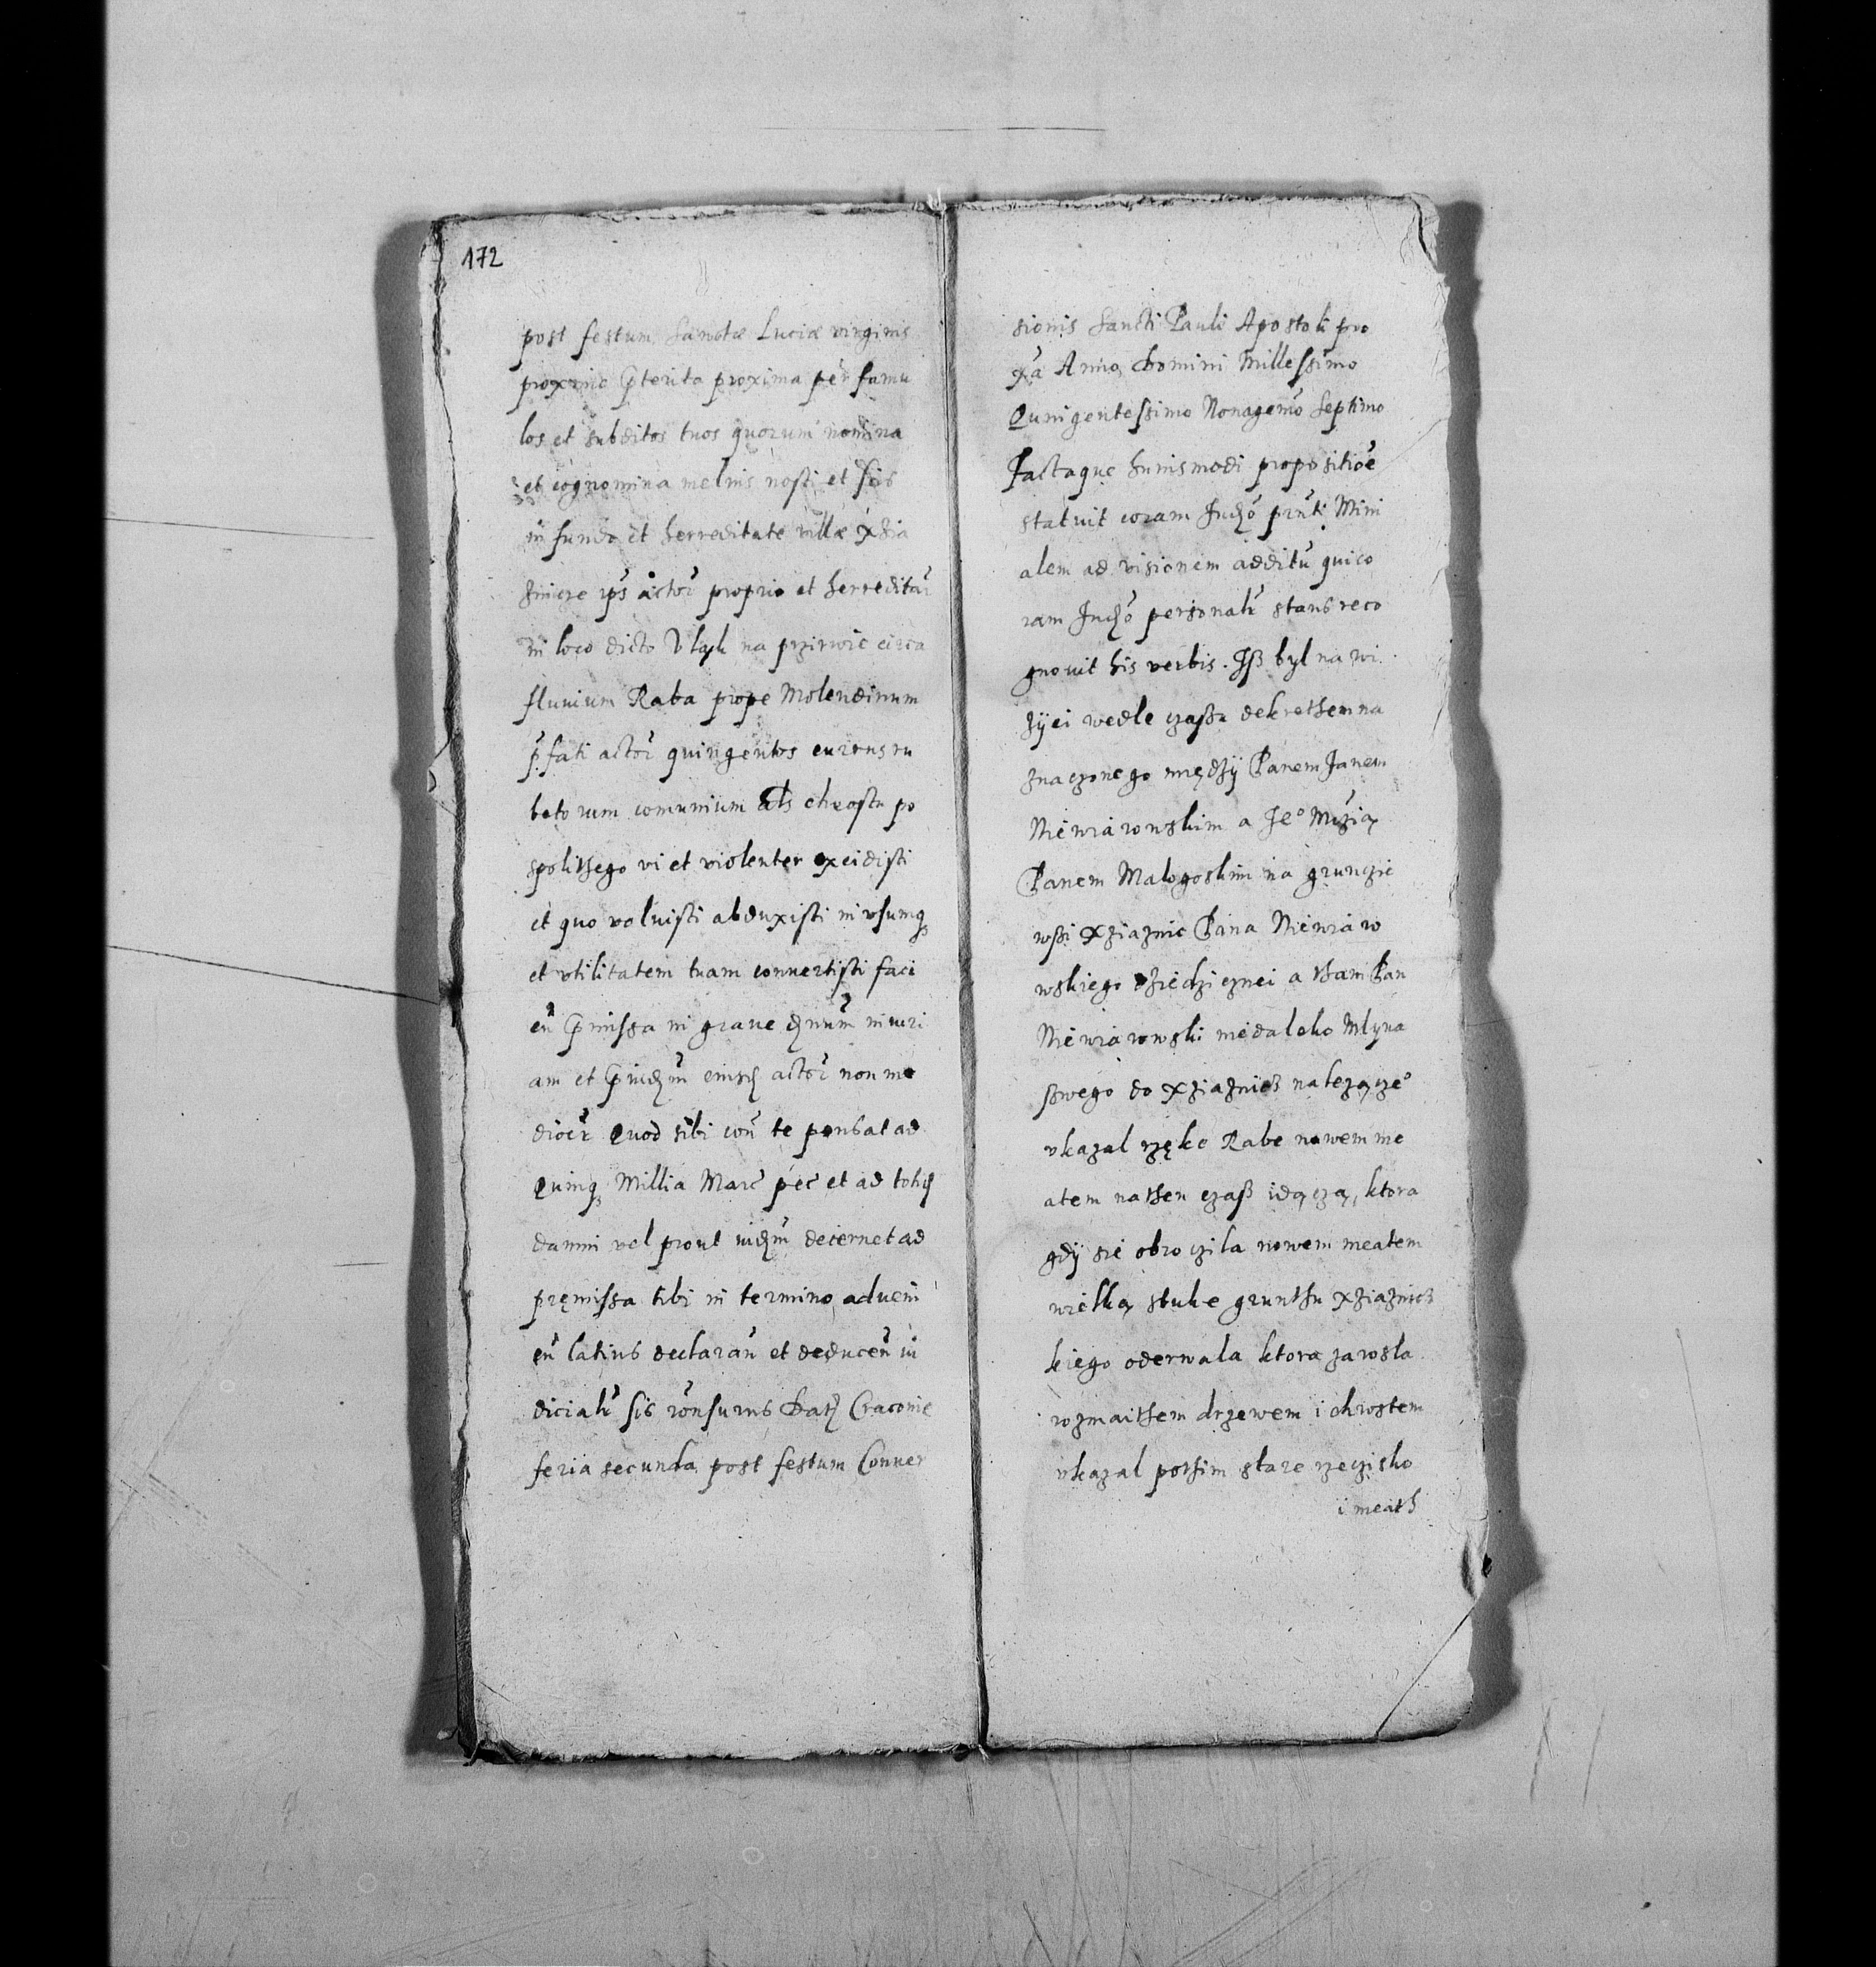 172
post festum Sanctæ Luciæ virginis
proxime p̄terita proxima per famu
los et subditos tuos quorum nomina
et cognomina melius nosti et scis
in fundo et herreditate villæ Xzia
znicze ip̄s actor̄ proprio et herreditar̄
in loco dicto Vlęk na przirwie circa
fluuium Raba prope Molendinum
p̄fati actor̄ quingentos currus ru
betorum comunium als chrostu po
spolithego vi et violenter excidisti
et quo voluisti abduxisti in vsumq₃
et vtilitatem tuam conuertisti faci
en̄ p̄missa in graue dnum̄ iniuri
am et p̄iudm̄ eiusd actor̄ non me
diocr̄ Quod sibi con̄ te pensat ad
Quinq₃ Millia Marc̄ pec̄ et ad totid
damni vel prout iudm̄ decernet ad
pręmissa tibi in termino adueni
en̄ latius declaran̄ et deducen̄ iu
dicialr̄ sis ron̄surus Dat Cracouie
feria secunda post festum Conuer
sionis Sancti Pauli Apostoli pro
xā Anno Domini Millessimo
Quingentessimo Nonagemo̅ Septimo
Factaque huiusmodi propositioē
statuit coram Judō pn̄ti Mini
alem ad visionem additū qui co
ram Judō personalr̄ stans reco
gnouit his verbis. Jß byl na wi
zÿei wedle czaßu dekrethem na
znaczonego międzÿ Panem Janem
Niewiarowskim a Je° Mczią
Panem Malogoskim na grunczie
wßi Xziaznic Pana Niewiaro
wskiego dziedzicznei a tham Pan
Niewiarowski niedaleko Mlyna
ßwego do Xziaznicz nalezącze°
vkazal rzęke Rabe nowem me
atem na then czaß idączą, ktora
gdÿ sie obroczila nowem meatem
wielką stuke grunthu Xziaznicz
kiego oderwala ktora zarosla
rozmaithem drzewem i chrostem
vkazal pothim stare rzeczisko
i meath